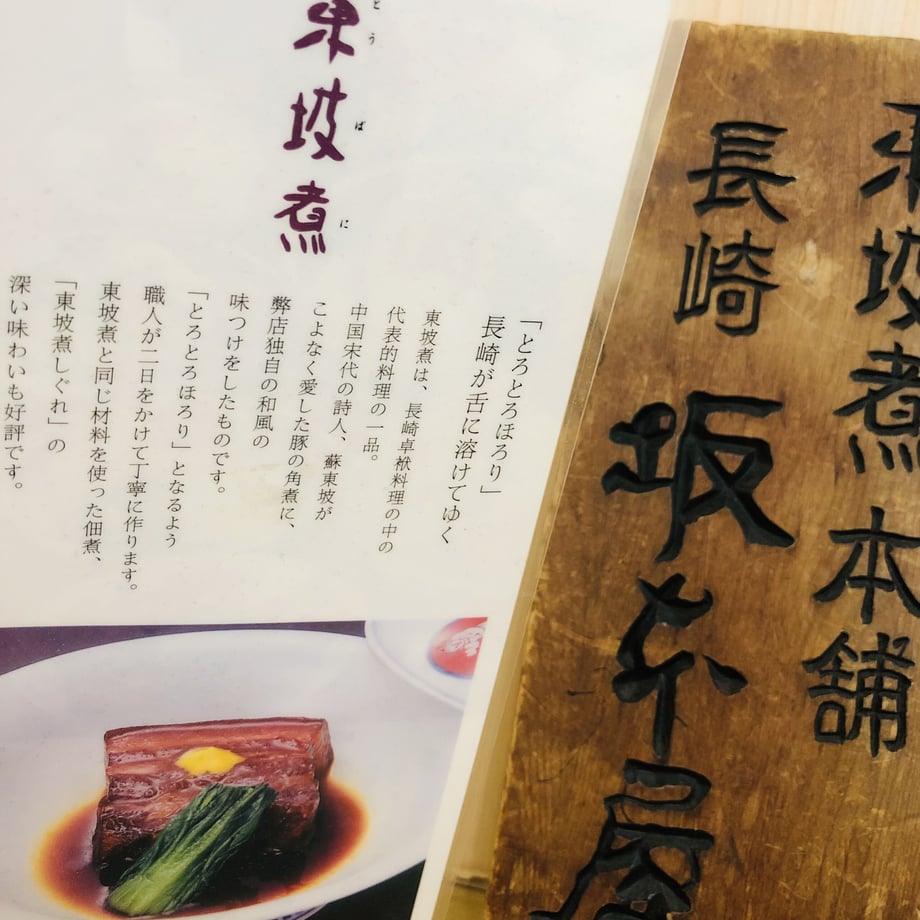 東坡煮本舗
長崎
坂本屋
東坡煮
とうばに
「とろとろほろり」
長崎が舌に溶けてゆく
東坡煮は、長崎卓袱料理の中の
代表的料理の一品。
中国宋代の詩人、蘇東坡が
こよなく愛した豚の角煮に、
弊店独自の和風の
味つけをしたものです。
「とろとろほろり」となるよう
職人が二日をかけて丁寧に作ります。
東坡煮と同じ材料を使った佃煮、
「東坡煮しぐれ」の
深い味わいも好評です。